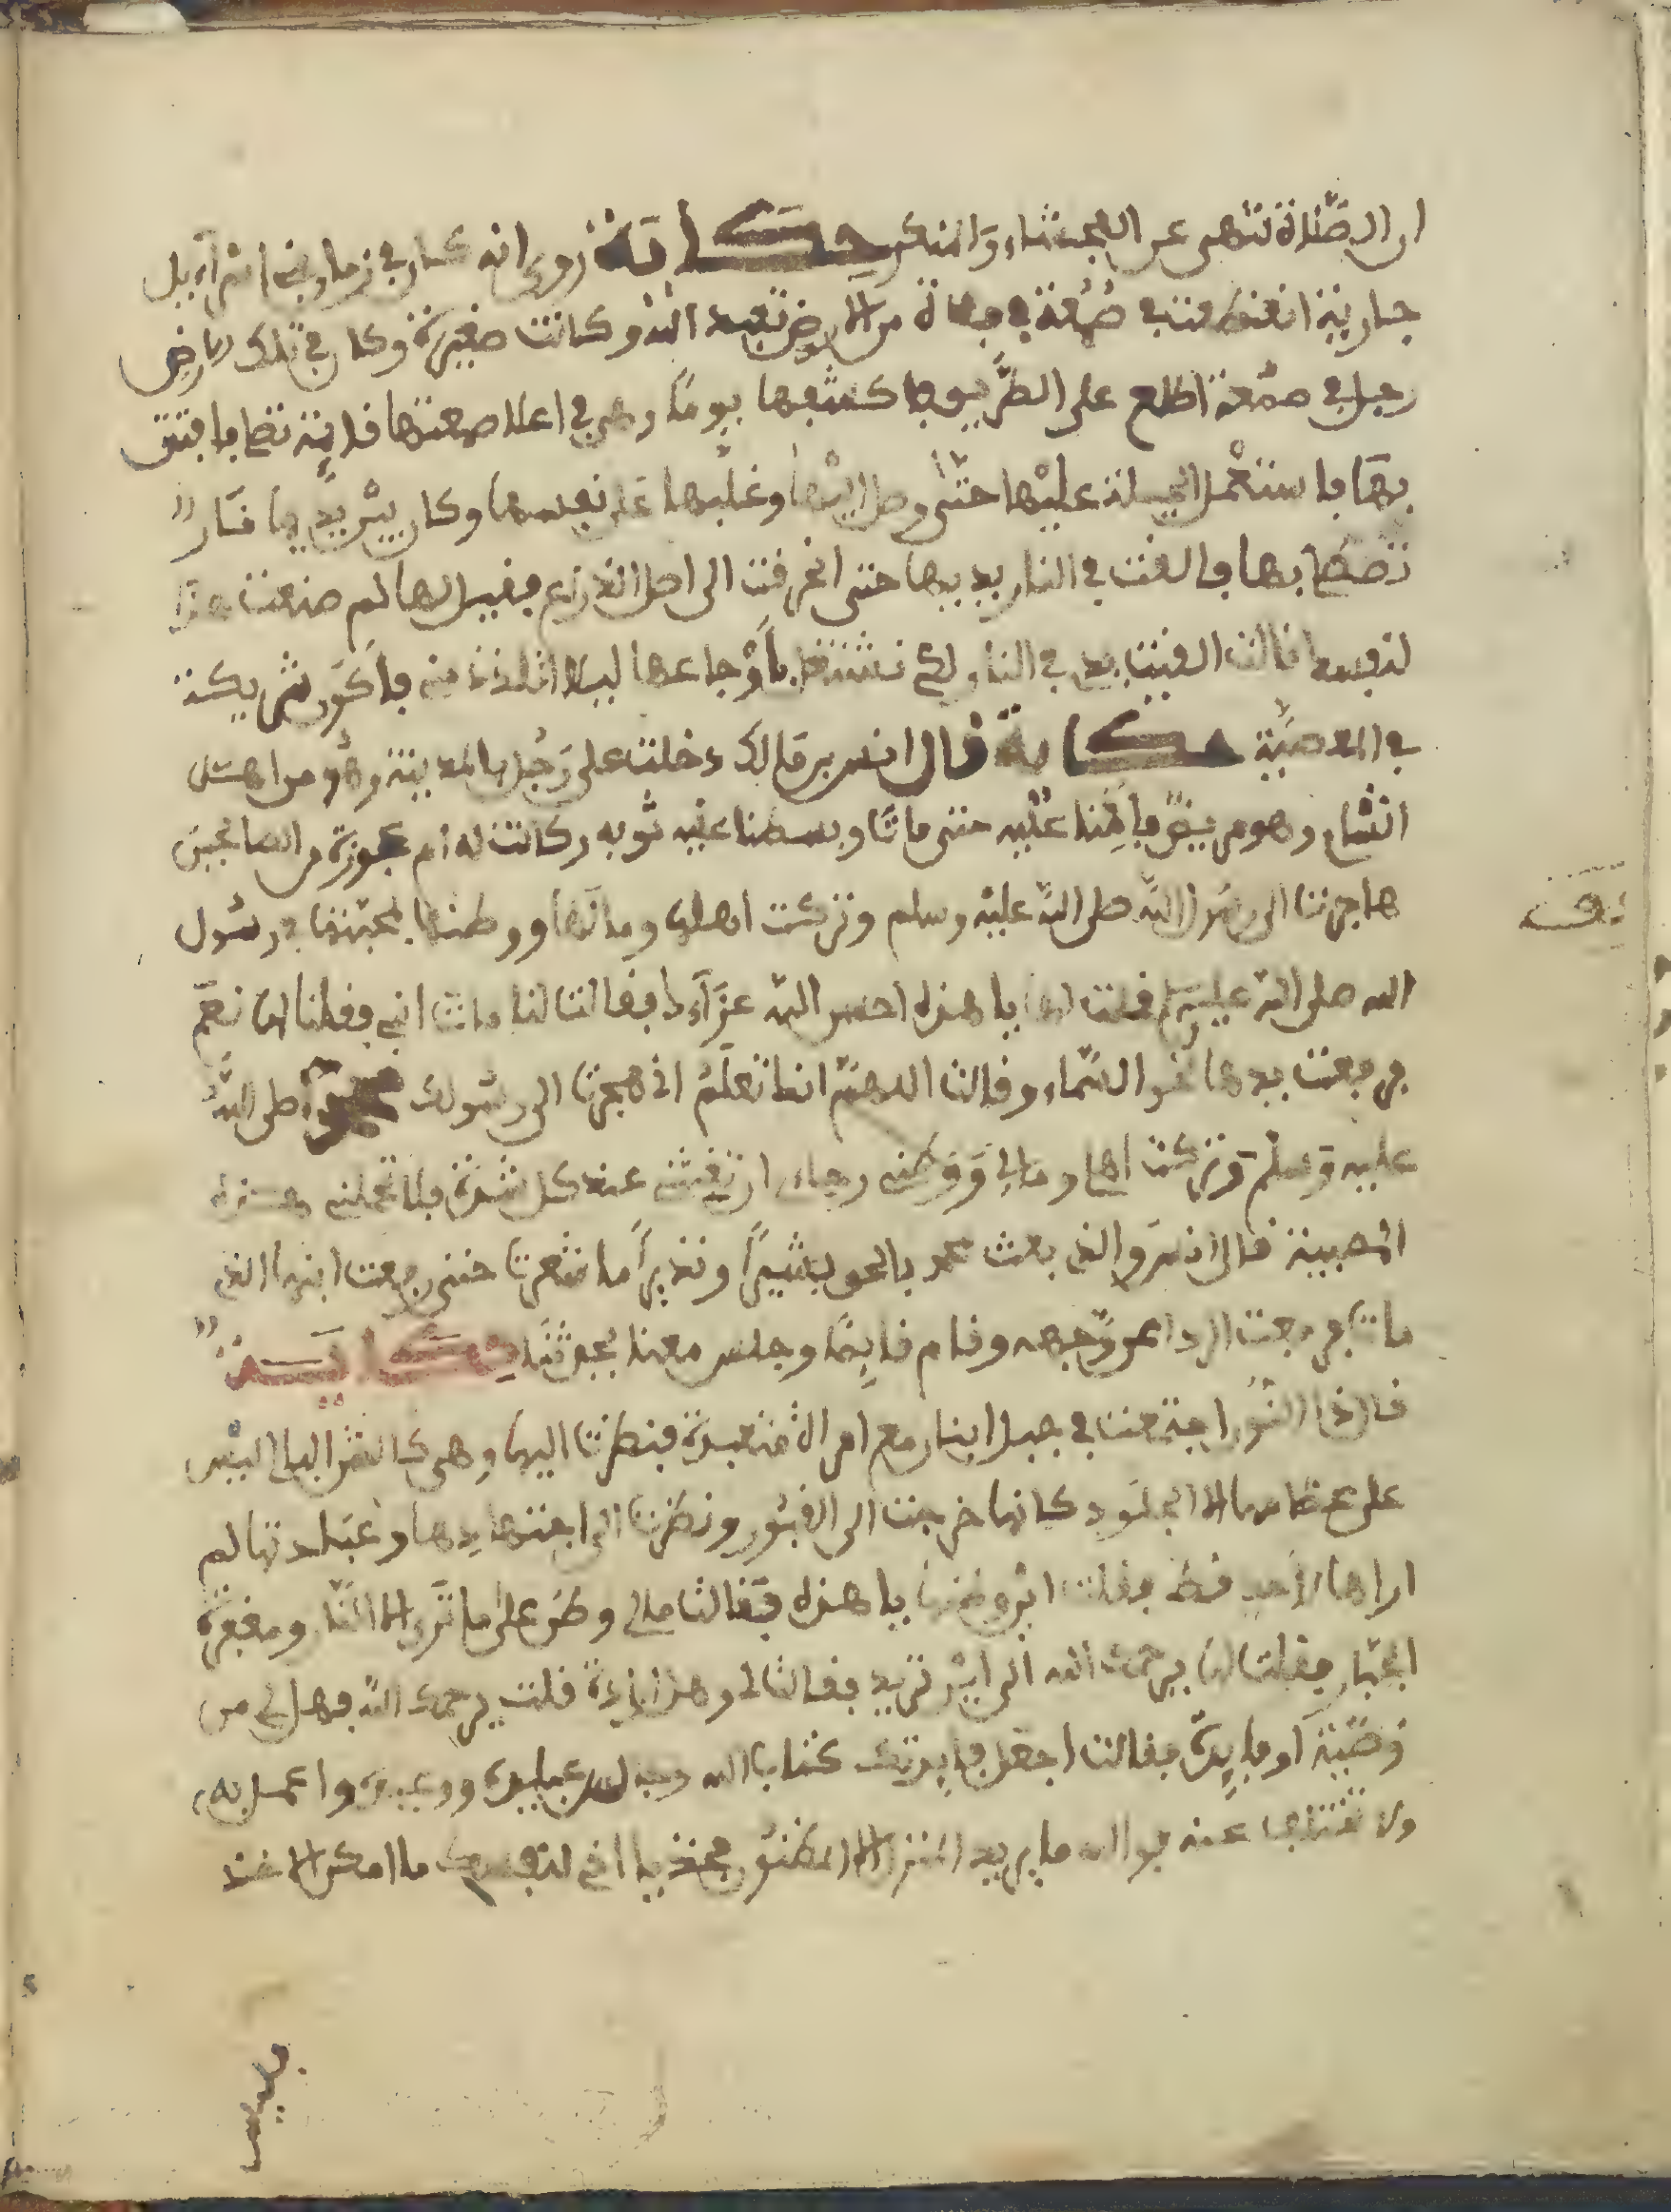 ان الصَّلاة تنهى عن الفحشاء والمنكر حكاية روي انه كان في زمان بني اسرآءيل
جارية انقطعت في صمعة في فلاة من الارض تعبد الله وكانت صغيرة وكان في تلك الارض
رجل في صمعة اطلع على الطريق يوما وهي في اعلا صمعتها قاينة بافتتن
بها فاستعمل الحيلة عليها حتى وصل اليها وغلبها على نفسها وكان بين يديها نار
تصطلي بها فالقت في النار يديها حتى احرقت الى اصل الذراع فقيل لها لم صنعت هذا
لنفسها قالت القيت يدي في النار لكي نشتغل باوجاعها ليلا اتلذذ منه فاكون شريكته
في المعصية حكاية قال انس بن مالك دخلت على رجل بالمدينة وهو من اهل
الشام وهو مريض فاقمنا عليه حتى مات وبسطنا عليه ثوبه وكانت له ام عجوزة من الصالحين
هاجرت الى رسول الله صلى الله عليه وسلم وتركت اهلها ومالها ووطنها لمحبتها في رسول
الله صلى الله عليه وسلم فقلت لها يا هذه احسن الله عزآءك فقالت لنا مات ابني فقلنا لها نعم
فرفعت يدها نحو السماء وقالت اللهم انك تعلم اني هجرت الى رسولك محمد صلى الله
عليه وسلم وتركت اهلي ومالي ووطني رجاء ان تغيثني عند كل شدة فلا تحملني هذه
المصيبة قال انس والذي بعث محمد بالحق بشيرا ونذيرا ما شعرت حتى رفعت ابنها الذي
مات فرفعت الرداء عن وجهه وقام قايما وجلس معنا يحدثنا حكاية
قال ذا النون اجتمعت في جبل لبنان مع امراة متعبدة فنظرت اليها وهي كالشن البالي ليس
على عظامها الا الجلود كانها خرجت الى القبور ونظرت الى اجتهادها وعبادتها لم
اراها لاحد قط فقلت اين وطنك يا هذه فقالت مالي وطن على ما ترى الا النار ومغفرة
الجبار فقلت لها يرحمك الله الى اين تريد فقالت لي وهذا زايدة قلت يرحمك الله فهل لي من
وصية او فايدة فقالت اجعل مايدتك كتاب الله وعده ووعيده واعمل به
ولا عنه فوالله ما يريد المنزل الا فخذ يا اخي لنفسك ما امكن الاخذ